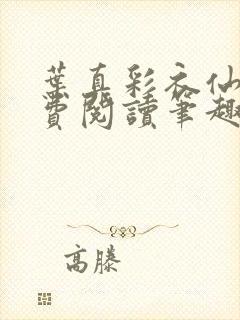 葉真彩衣仙
費閱讀筆趣
高滕